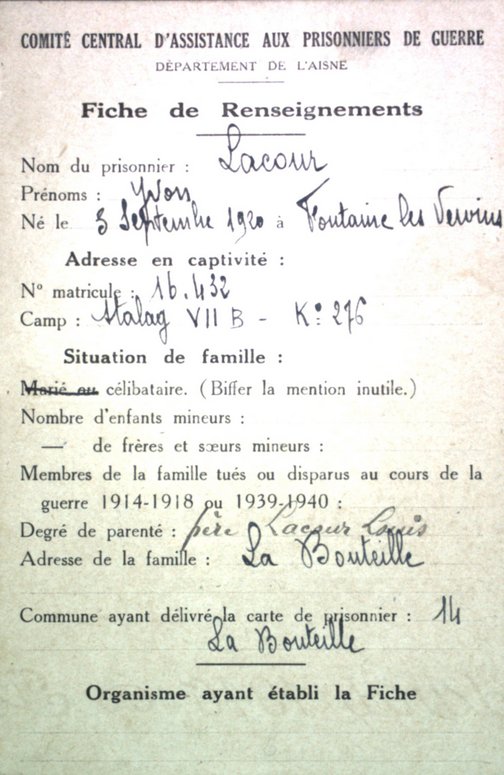 COMITÉ CENTRAL D'ASSISTANCE AUX PRISONNIERS DE GUERRE
DÉPARTEMENT DE L'AISNE
Fiche de Renseignements
Nom du prisonnier : Lacour
Prénoms : Yvon
Né le 3 Septembre 1920 à Fontaine les Vervins
Adresse en captivité :
N° matricule : 16.432
Camp : Stalag VII B - K° 276
Situation de famille :
Marié ou célibataire. (Biffer la mention inutile.)
Nombre d'enfants mineurs :
— de frères et sœurs mineurs :
Membres de la famille tués ou disparus au cours de la
guerre 1914-1918 ou 1939-1940 :
Degré de parenté : père Lacour Louis
Adresse de la famille : La Bouteille
Commune ayant délivré la carte de prisonnier : 14
La Bouteille
Organisme ayant établi la Fiche